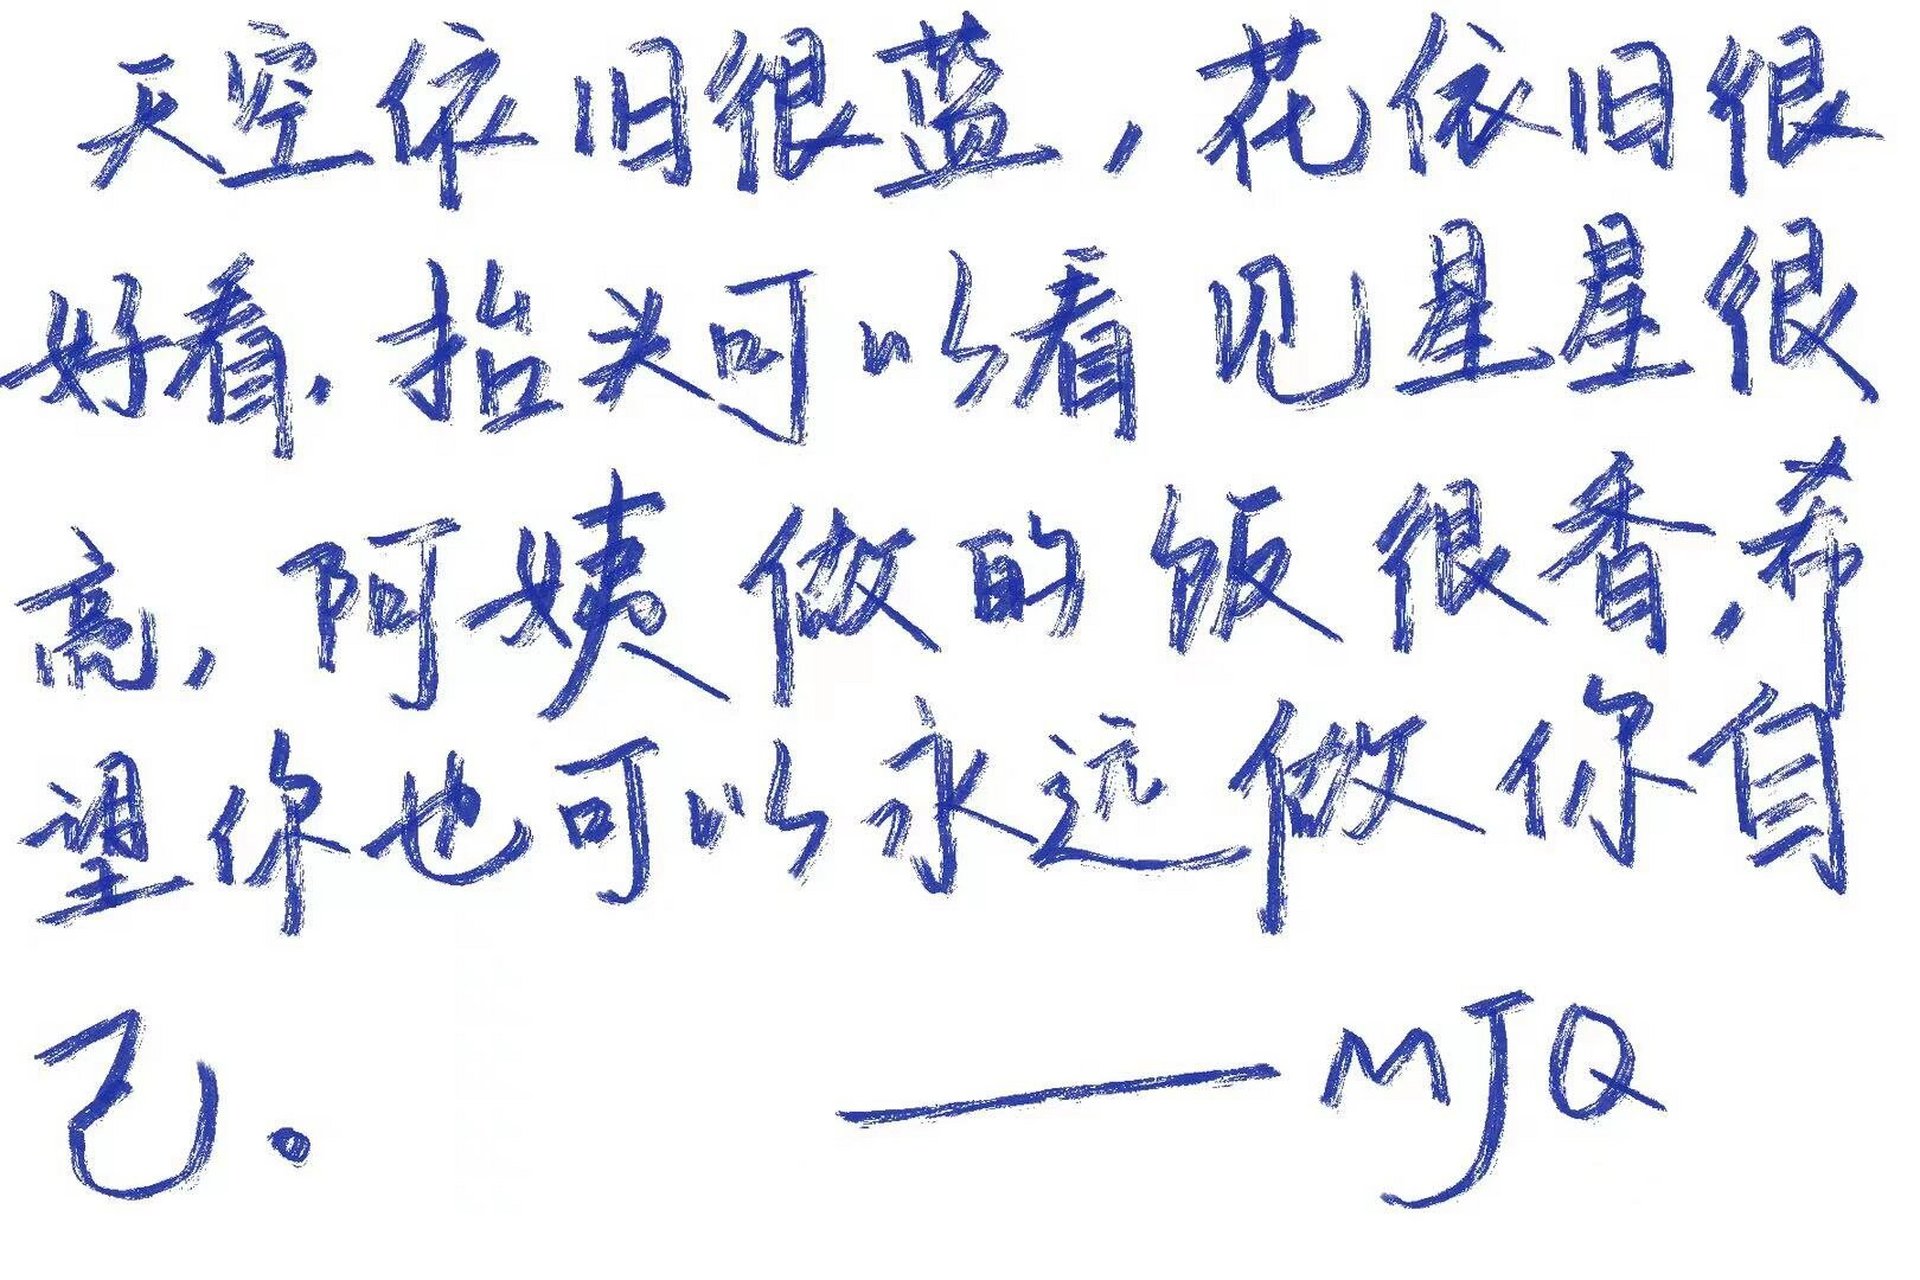 天空依旧很蓝，花依旧很
好看，抬头可以看见星星很
高，阿姨做的饭很香，希
望你也可以永远做你自
己。 ——MJQ